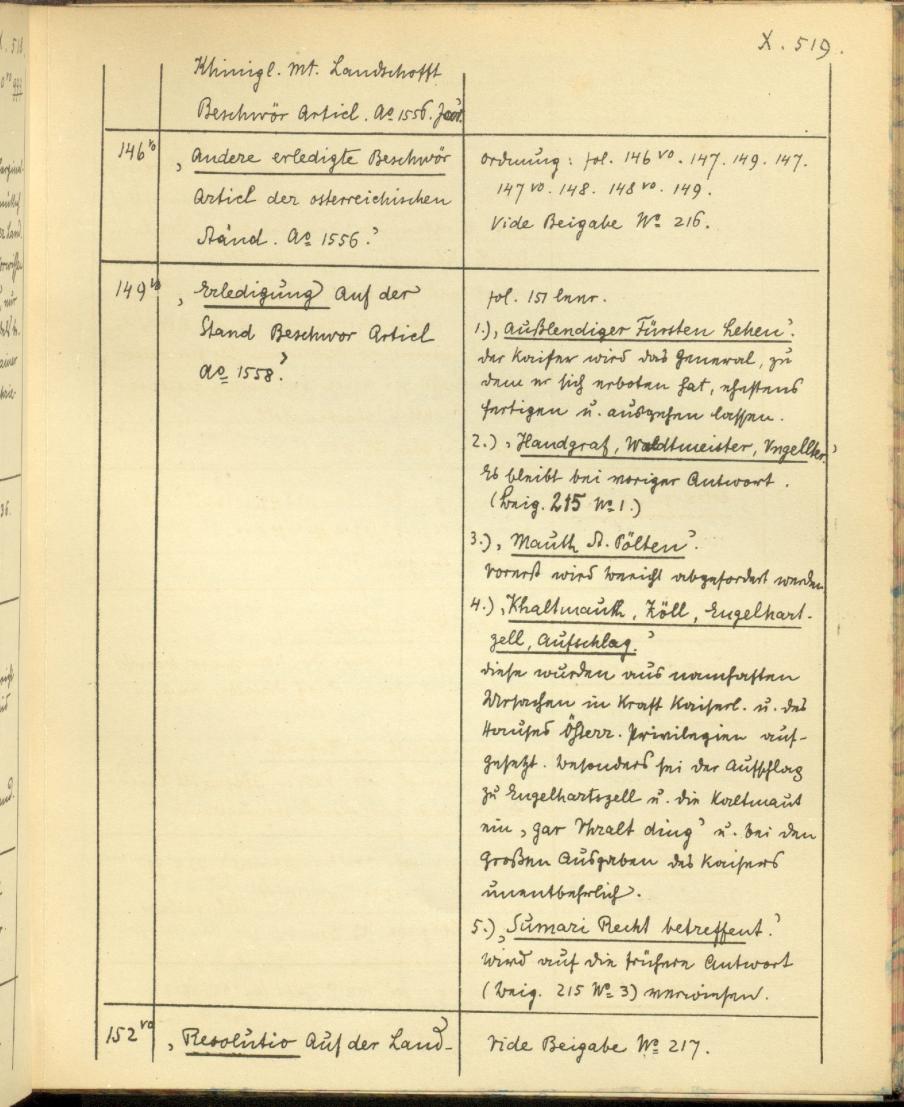 X. 519.
Khinigl. Mt. Landschofft
Beschwör Articl. Aº 1556. Jar.'
146 vo
‚Andere erledigte Beschwör
Articl der österreichischen
Ständ. Aº 1556.'
Ordnung: fol. 146 vo. 147. 149. 147.
147 vo. 148. 148 vo. 149.
Vide Beigabe Nº 216.
149 vo
‚Erledigung Auf der
Stand Beschwor Articl
Aº 1558.'
fol. 151 leer.
1.) ‚Außlendiger Fürsten Lehen'.
Der Kaiser wird das General, zu
dem er sich erboten hat, ehestens
fertigen u. ausgehen lassen.
2.) ‚Handgraf, Waldtmeister, Vngellter.'
Es bleibt bei voriger Antwort.
(Beig. 215 Nº 1.)
3.) ‚Mauth St. Pölten'.
Vorerst wird Bericht abgefordert werden
4.) ‚Khaltmauth, Zöll, Engelhart-
zell, Aufschlag.'
Diese wurden aus namhaften
Ursachen in Kraft Kaiserl. u. des
Hauses Österr. Privilegien auf-
gesetzt. Besonders sei der Aufschlag
zu Engelhartszell u. die Kaltmaut
ein ‚gar Vhralt ding' u. bei den
großen Ausgaben des Kaisers
unentbehrlich.
5.) ‚Sumari Recht betreffent.'
Wird auf die frühere Antwort
(Beig. 215 Nº 3) verwiesen.
152 vo
‚Resolutio Auf der Land-
Vide Beigabe Nº 217.